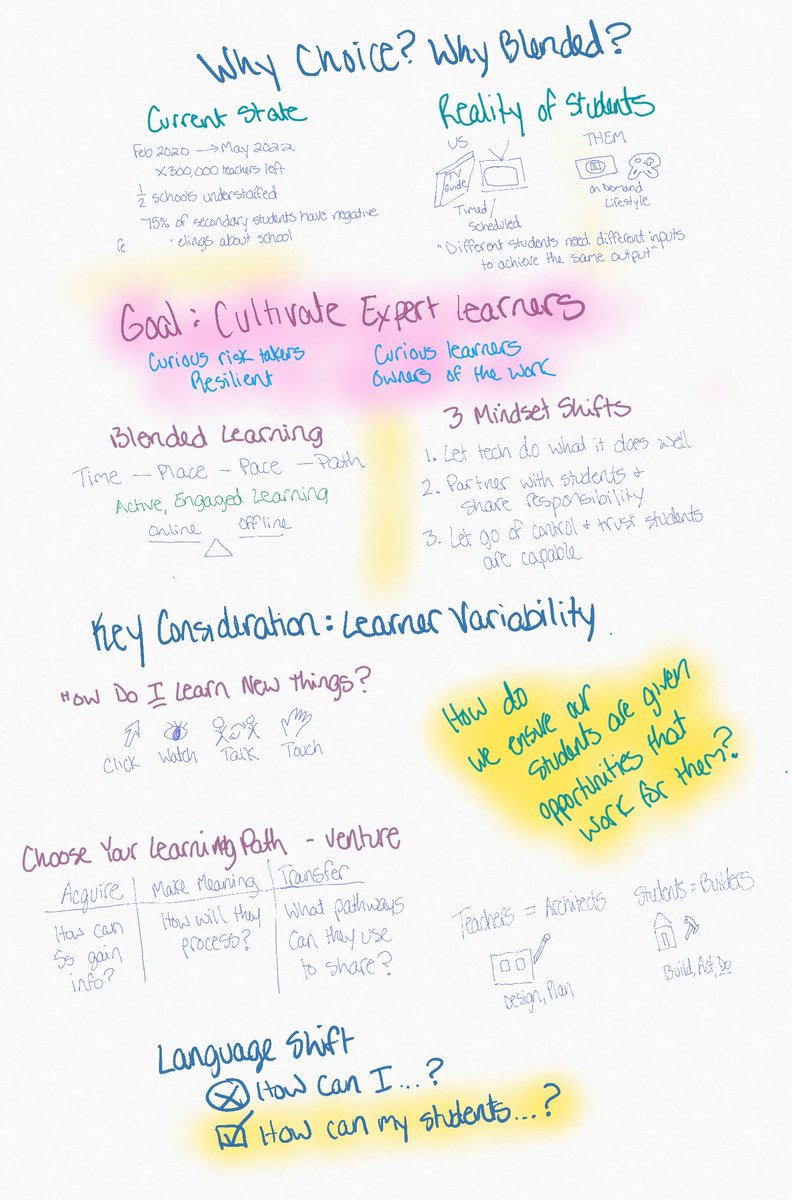 Why Choice? Why Blended?
Current State
Feb 2020 → May 2022
x300,000 teachers left
1/2 schools understaffed
75% of secondary students have negative
fe elings about school
Reality of Students
US
TV Guide
Timed/
Scheduled
THEM
on Demand
Lifestyle
"Different students need different inputs
to achieve the same output"
Goal: Cultivate Expert Learners
Curious risk takers
Resilient
Curious learners
Owners of the work
Blended Learning
Time — Place — Pace — Path
Active, Engaged Learning
Online Offline
3 Mindset Shifts
1. Let tech do what it does well
2. Partner with students +
share responsibility
3. Let go of control + trust students
are capable
Key Consideration: Learner Variability
How Do I Learn New Things?
Click Watch Talk Touch
How do
we ensure our
students are given
opportunities that
work for them?
Choose Your Learning Path - venture
Acquire
How can
Ss gain
info?
Make Meaning
How will they
process?
Transfer
What pathways
can they use
to share?
Teachers = Architects
Design, Plan
Students = Builders
Build, Act, Do
Language Shift
How can I...?
How can my students...?